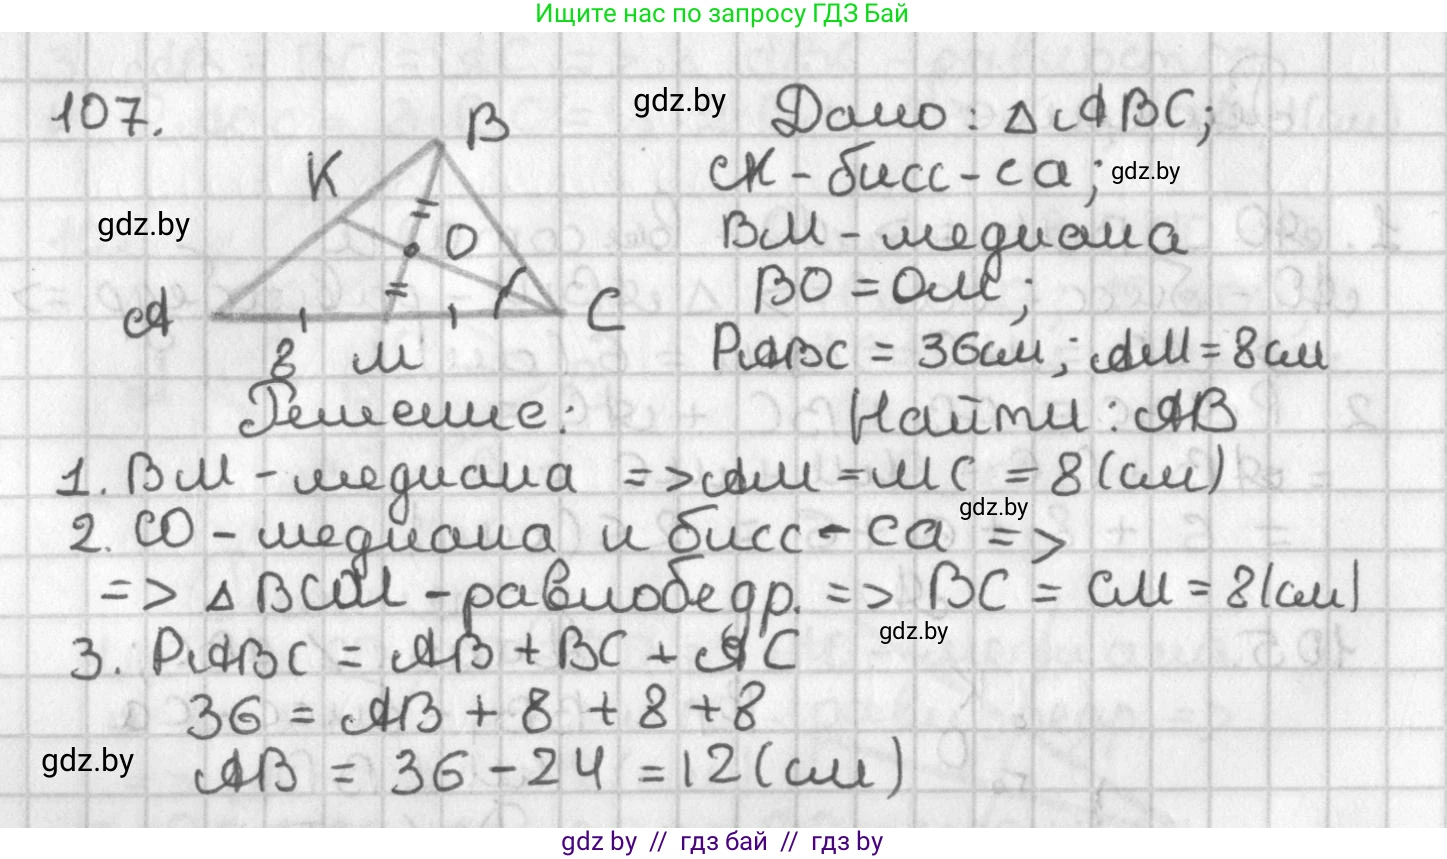 Ищите нас по запросу ГДЗ Бай
107.
B
K
O
A
C
8
M
gdz.by
gdz.by
Дано: △ABC;
CK - бисс-са;
gdz.by
BM - медиана
BO = OM;
PABC = 36см; AM = 8см
Решение:
Найти: AB
1. BM - медиана => AM = MC = 8(см)
gdz.by
2. CO - медиана и бисс-са =>
=> △BCM - равнобедр. => BC = CM = 8(см)
gdz.by
3. PABC = AB + BC + AC
36 = AB + 8 + 8 + 8
gdz.by
AB = 36 - 24 = 12(см)
gdz by // гдз бай // гдз by